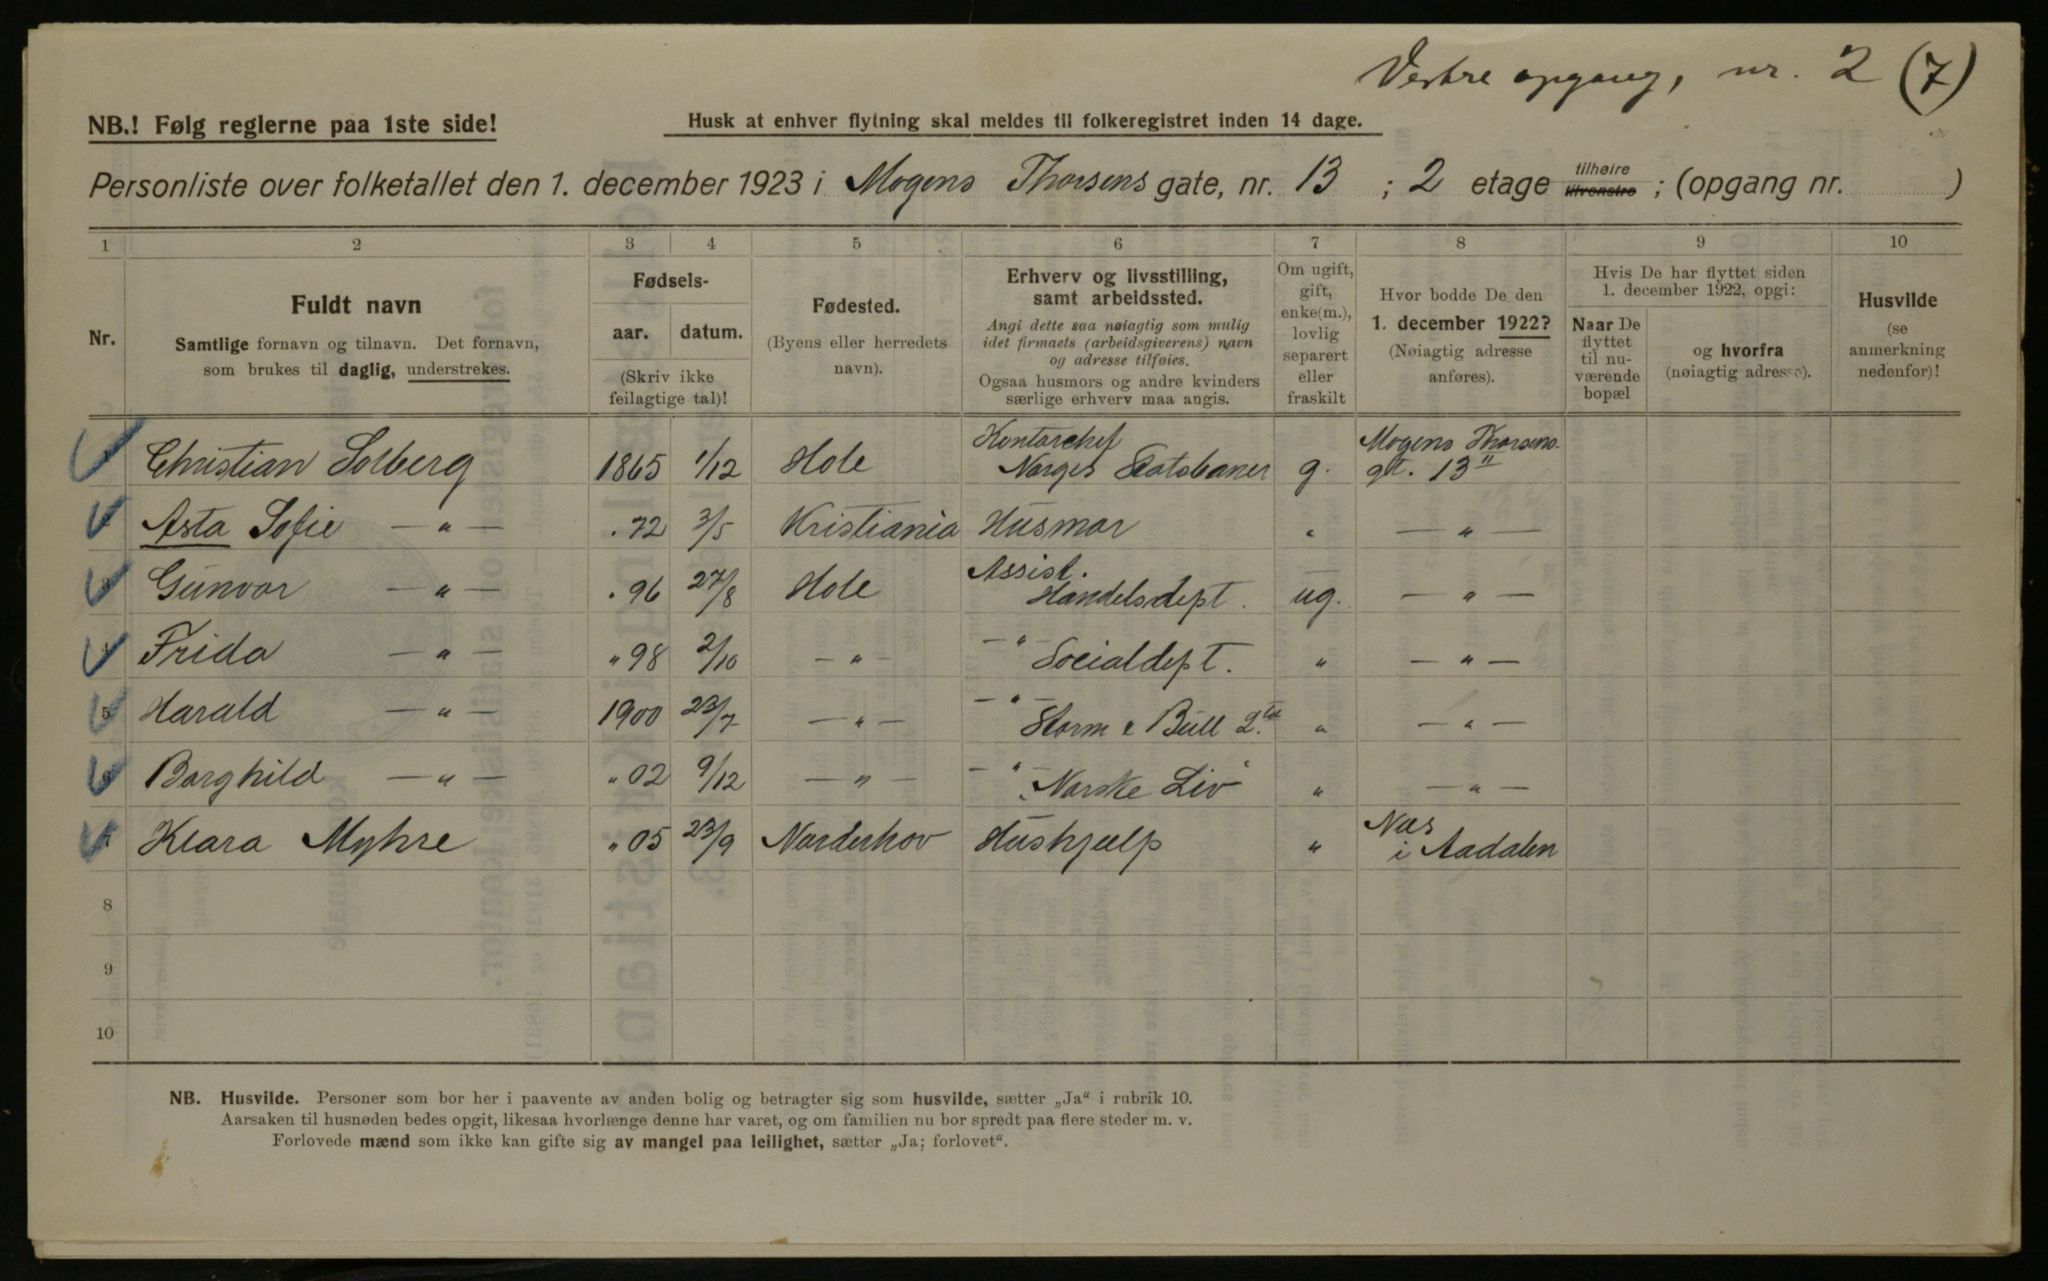 Vestre opgang, nr. 2 (7)
NB.! Følg reglerne paa 1ste side!
Husk at enhver flytning skal meldes til folkeregistret inden 14 dage.
Personliste over folketallet den 1. december 1923 i Mogens Thorsens gate, nr. 13 ; 2 etage tilhøire tilvenstre ; (opgang nr. )
1 2 3 4 5 6 7 8 9 10
Nr.
Fuldt navn
Samtlige fornavn og tilnavn. Det fornavn,
som brukes til daglig, understrekes.
Fødsels-
aar. datum.
(Skriv ikke
feilagtige tal)!
Fødested.
(Byens eller herredets
navn).
Erhverv og livsstilling,
samt arbeidssted.
Angi dette saa nøiagtig som mulig
idet firmaets (arbeidsgiverens) navn
og adresse tilføies.
Ogsaa husmors og andre kvinders
særlige erhverv maa angis.
Om ugift,
gift,
enke(m.),
lovlig
separert
eller
fraskilt
Hvor bodde De den
1. december 1922?
(Nøiagtig adresse
anføres).
Hvis De har flyttet siden
1. december 1922, opgi:
Naar De
flyttet
til nu-
værende
bopæl
og hvorfra
(nøiagtig adresse).
Husvilde
(se
anmerkning
nedenfor)!
Christian Solberg 1865 1/12 Hole Kontorchef Norges Statsbaner g. Mogens Thorsens gt. 13 II
2 Asta Sofie — " — " 72 3/5 Kristiania Husmor " — " —
3 Gunvor — " — " 96 27/8 Hole Assist. Handelsdept. ug. — " —
4 Frida — " — " 98 2/10 — " — — " — Socialdept. " — " —
5 Harald — " — 1900 23/7 — " — — " — Storm & Bull Ltd. " — " —
6 Borghild — " — " 02 9/12 — " — — " — "Norske Liv" " — " —
7 Klara Myhre " 05 23/9 Norderhov Hushjælp " Næs i Aadalen
8
9
10
NB. Husvilde. Personer som bor her i paavente av anden bolig og betragter sig som husvilde, sætter „Ja“ i rubrik 10.
Aarsaken til husnøden bedes opgit, likesaa hvorlænge denne har varet, og om familien nu bor spredt paa flere steder m. v.
Forlovede mænd som ikke kan gifte sig av mangel paa leilighet, sætter „Ja; forlovet“.